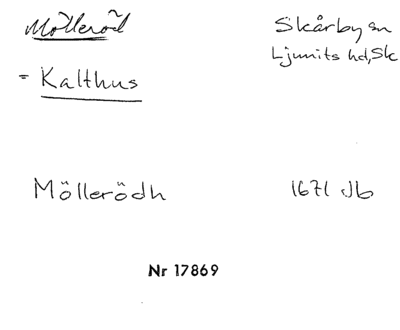 Mölleröd
Skårby sn
Ljunits hd, Sk
= Kalthus
Möllerödh
1671 Jb
Nr 17869